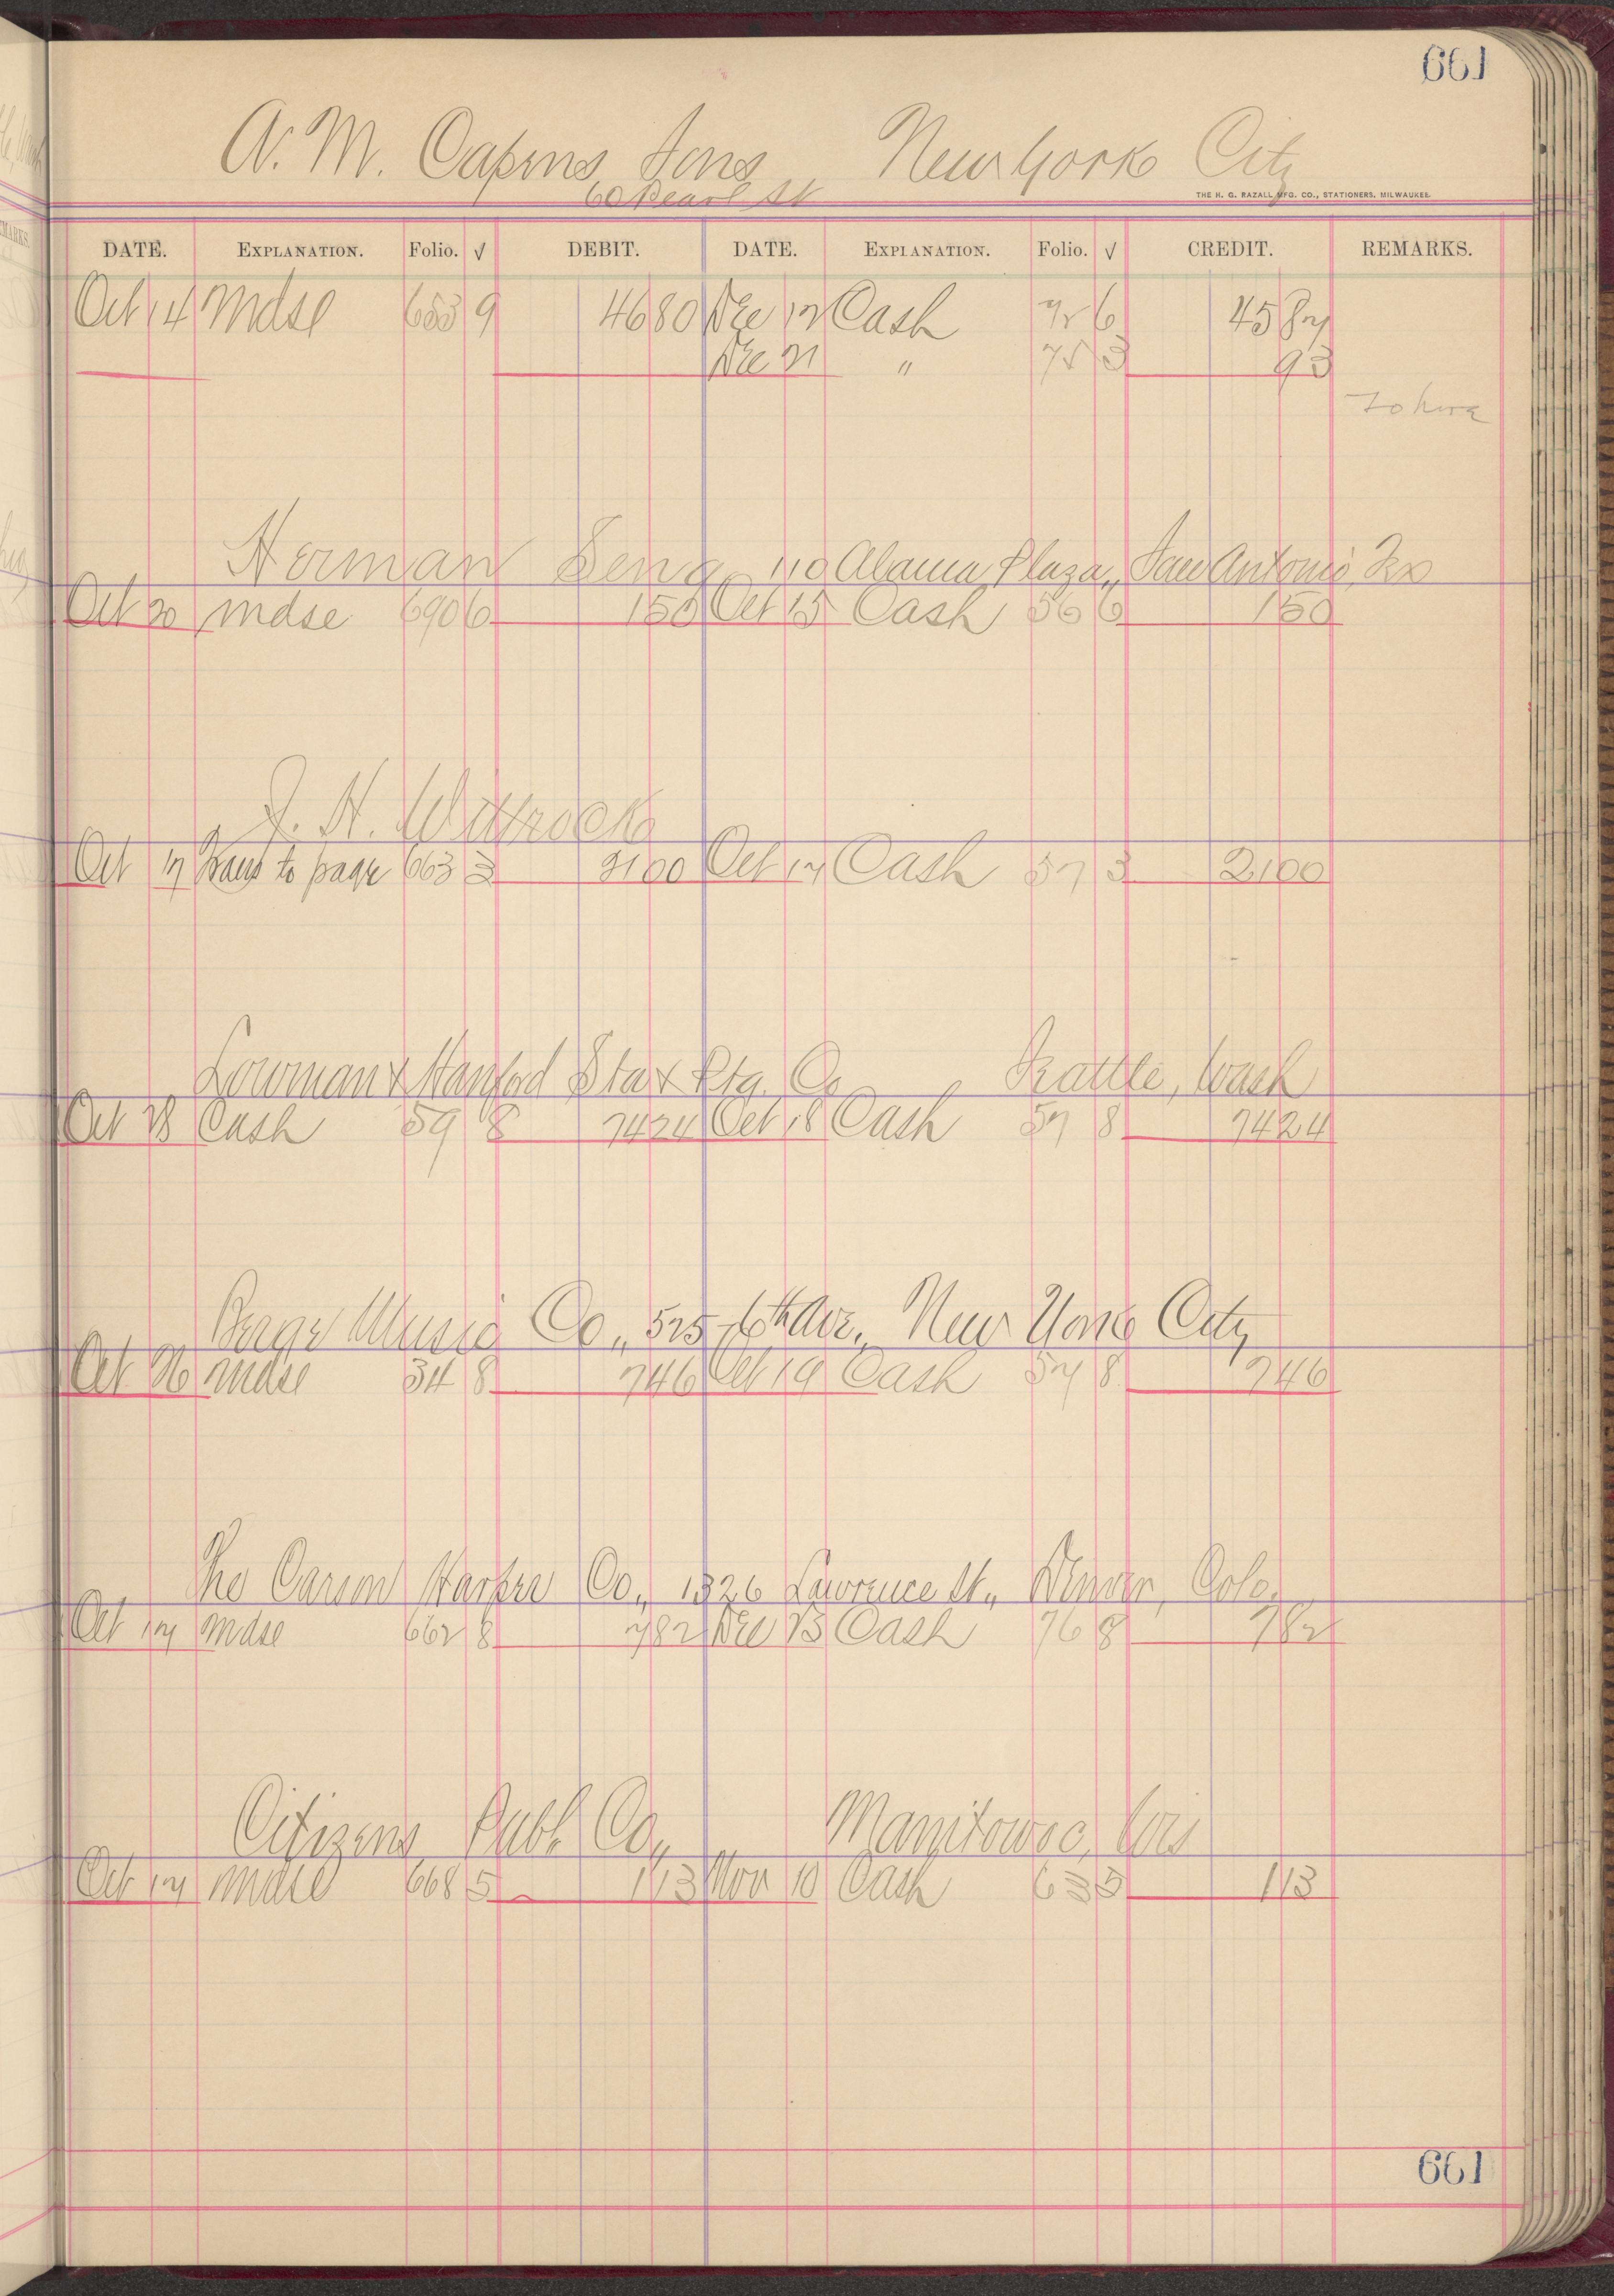 661
A. M. Capens Sons, New York City
60 Pearl St
THE H. G. RAZALL MFG. CO., STATIONERS, MILWAUKEE.
DATE. EXPLANATION. Folio. √ DEBIT. DATE. EXPLANATION. Folio. √ CREDIT. REMARKS.
Oct 14 Mdse 653 9 46 80 Dec 12 Cash 72 6 45 87
Dec 21 " 75 3 93
Herman Seng 110 Alamo Plaza, San Antonio, Tex
Oct 20 Mdse 690 6 1 50 Oct 15 Cash 56 6 1 50
J. H. Wittrock
Oct 17 Trans to page 663 3 21 00 Oct 17 Cash 57 3 21 00
Lowman & Hanford Sta & Ptg. Co Seattle, Wash
Oct 28 Cash 59 8 74 24 Oct 18 Cash 57 8 74 24
Berge Music Co., 525-6th Ave., New York City
Oct 26 Mdse 34 8 7 46 Oct 19 Cash 57 8 7 46
The Carson Harper Co., 1326 Lawrence St., Denver, Colo.
Oct 17 Mdse 662 8 7 82 Dec 23 Cash 76 8 7 82
Citizens Publ Co., Manitowoc, Wis
Oct 17 Mdse 668 5 1 13 Nov 10 Cash 63 5 1 13
661